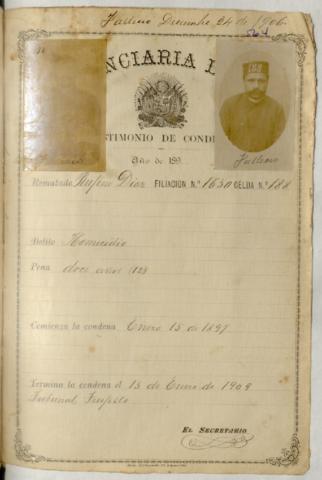 Falleció Diciembre 24 de 1906
NCIARIA
188
STIMONIO DE COND
Falleció
Año de 189
Rematado Rufino Diaz FILIACION N.º 1630 CELDA N.º 188
Delito Homicidio
Pena doce años (12)
Comienza la condena Enero 15 de 1897
Termina la condena el 15 de Enero de 1909
Tribunal Trujillo
EL SECRETARIO